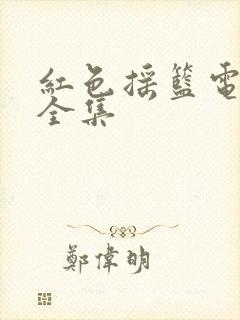 紅色搖籃電
全集
鄭偉明